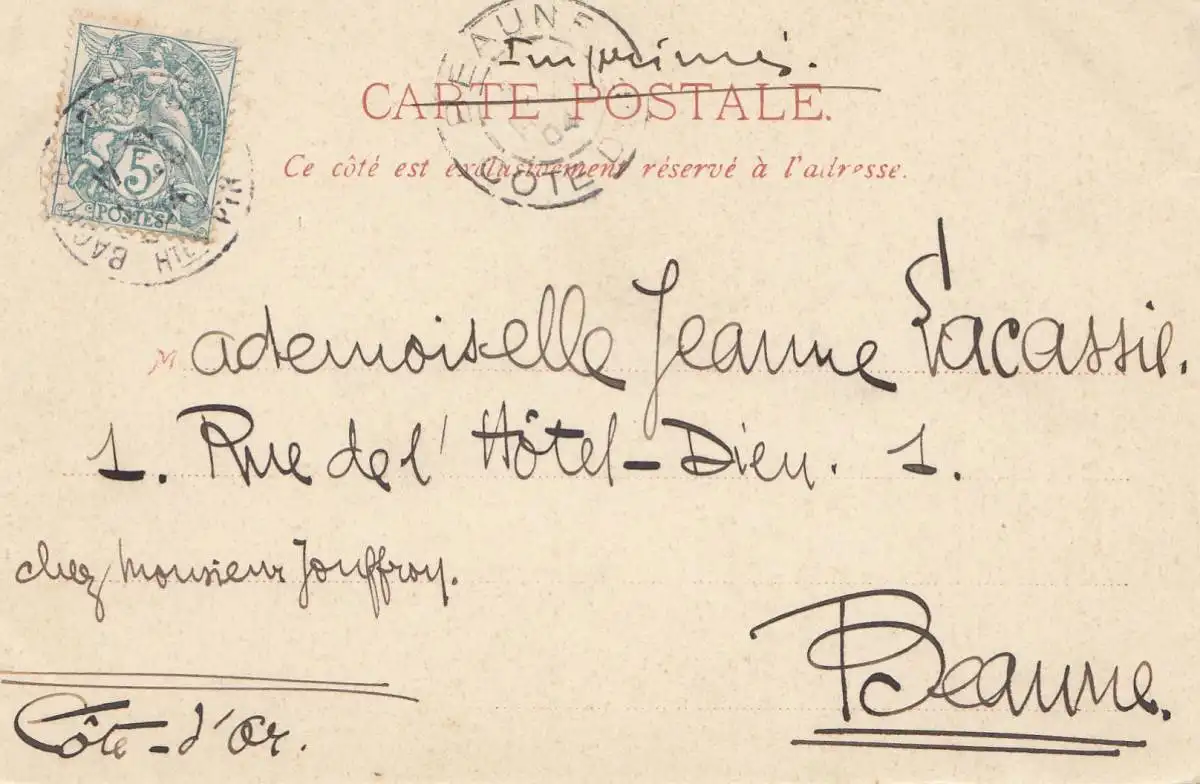 Imprimés.
CARTE POSTALE.
Ce côté est exclusivement réservé à l'adresse.
BEAUNE
04
CÔTE D'
5c
POSTES
BAG
HTES PYR
Mademoiselle Jeanne Lacassie.
1. Rue de l'Hôtel-Dieu. 1.
chez Monsieur Jouffroy.
Beaune.
Côte-d'Or.